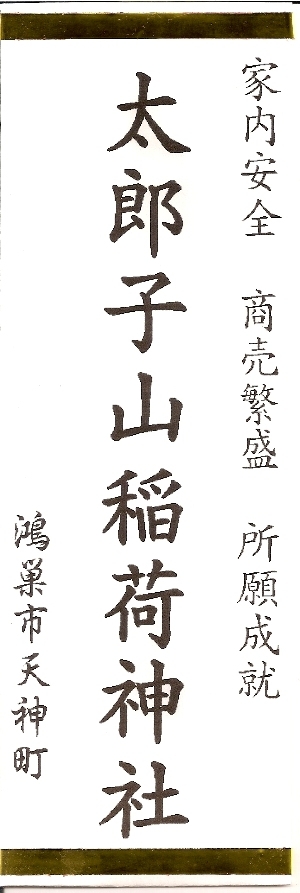 家内安全　商売繁盛　所願成就
太郎子山稲荷神社
鴻巣市天神町